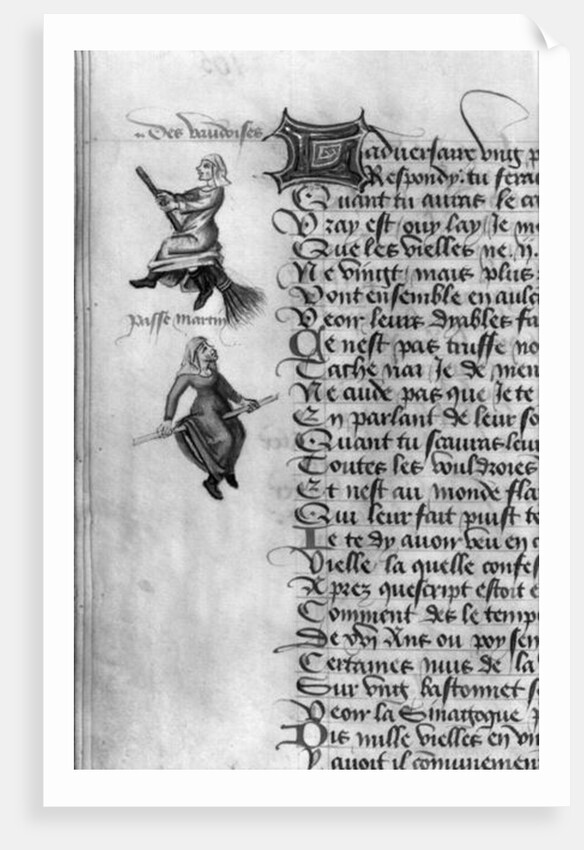 Des vaudoises
passe martin
Ladversaire vng p
Respondy. tu feras
Quant tu auras le ca
Vray est ouy lay Je me
Que les vielles ne. ij.
Ne vingt mais plus
Vont ensemble en aulc
Veoir leurs dyables fa
Ce nest pas truffe no
Tache nar Je de men
Ne cude pas que Je te
En parlant de leur so
Quant tu scauras leur
Toutes les vouldroies
Et nest au monde fla
Qui leur fait puist to
Je te dy avoir veu en c
Vielle la quelle confes
Aprez quescript estoit e
Comment des le temps
De xvj Ans ou poy sen
Certaines nuis de la
Sur vng bastonnet s
Veoir la Sinagogue p
Dis mille vielles en vn
Y avoit il communement